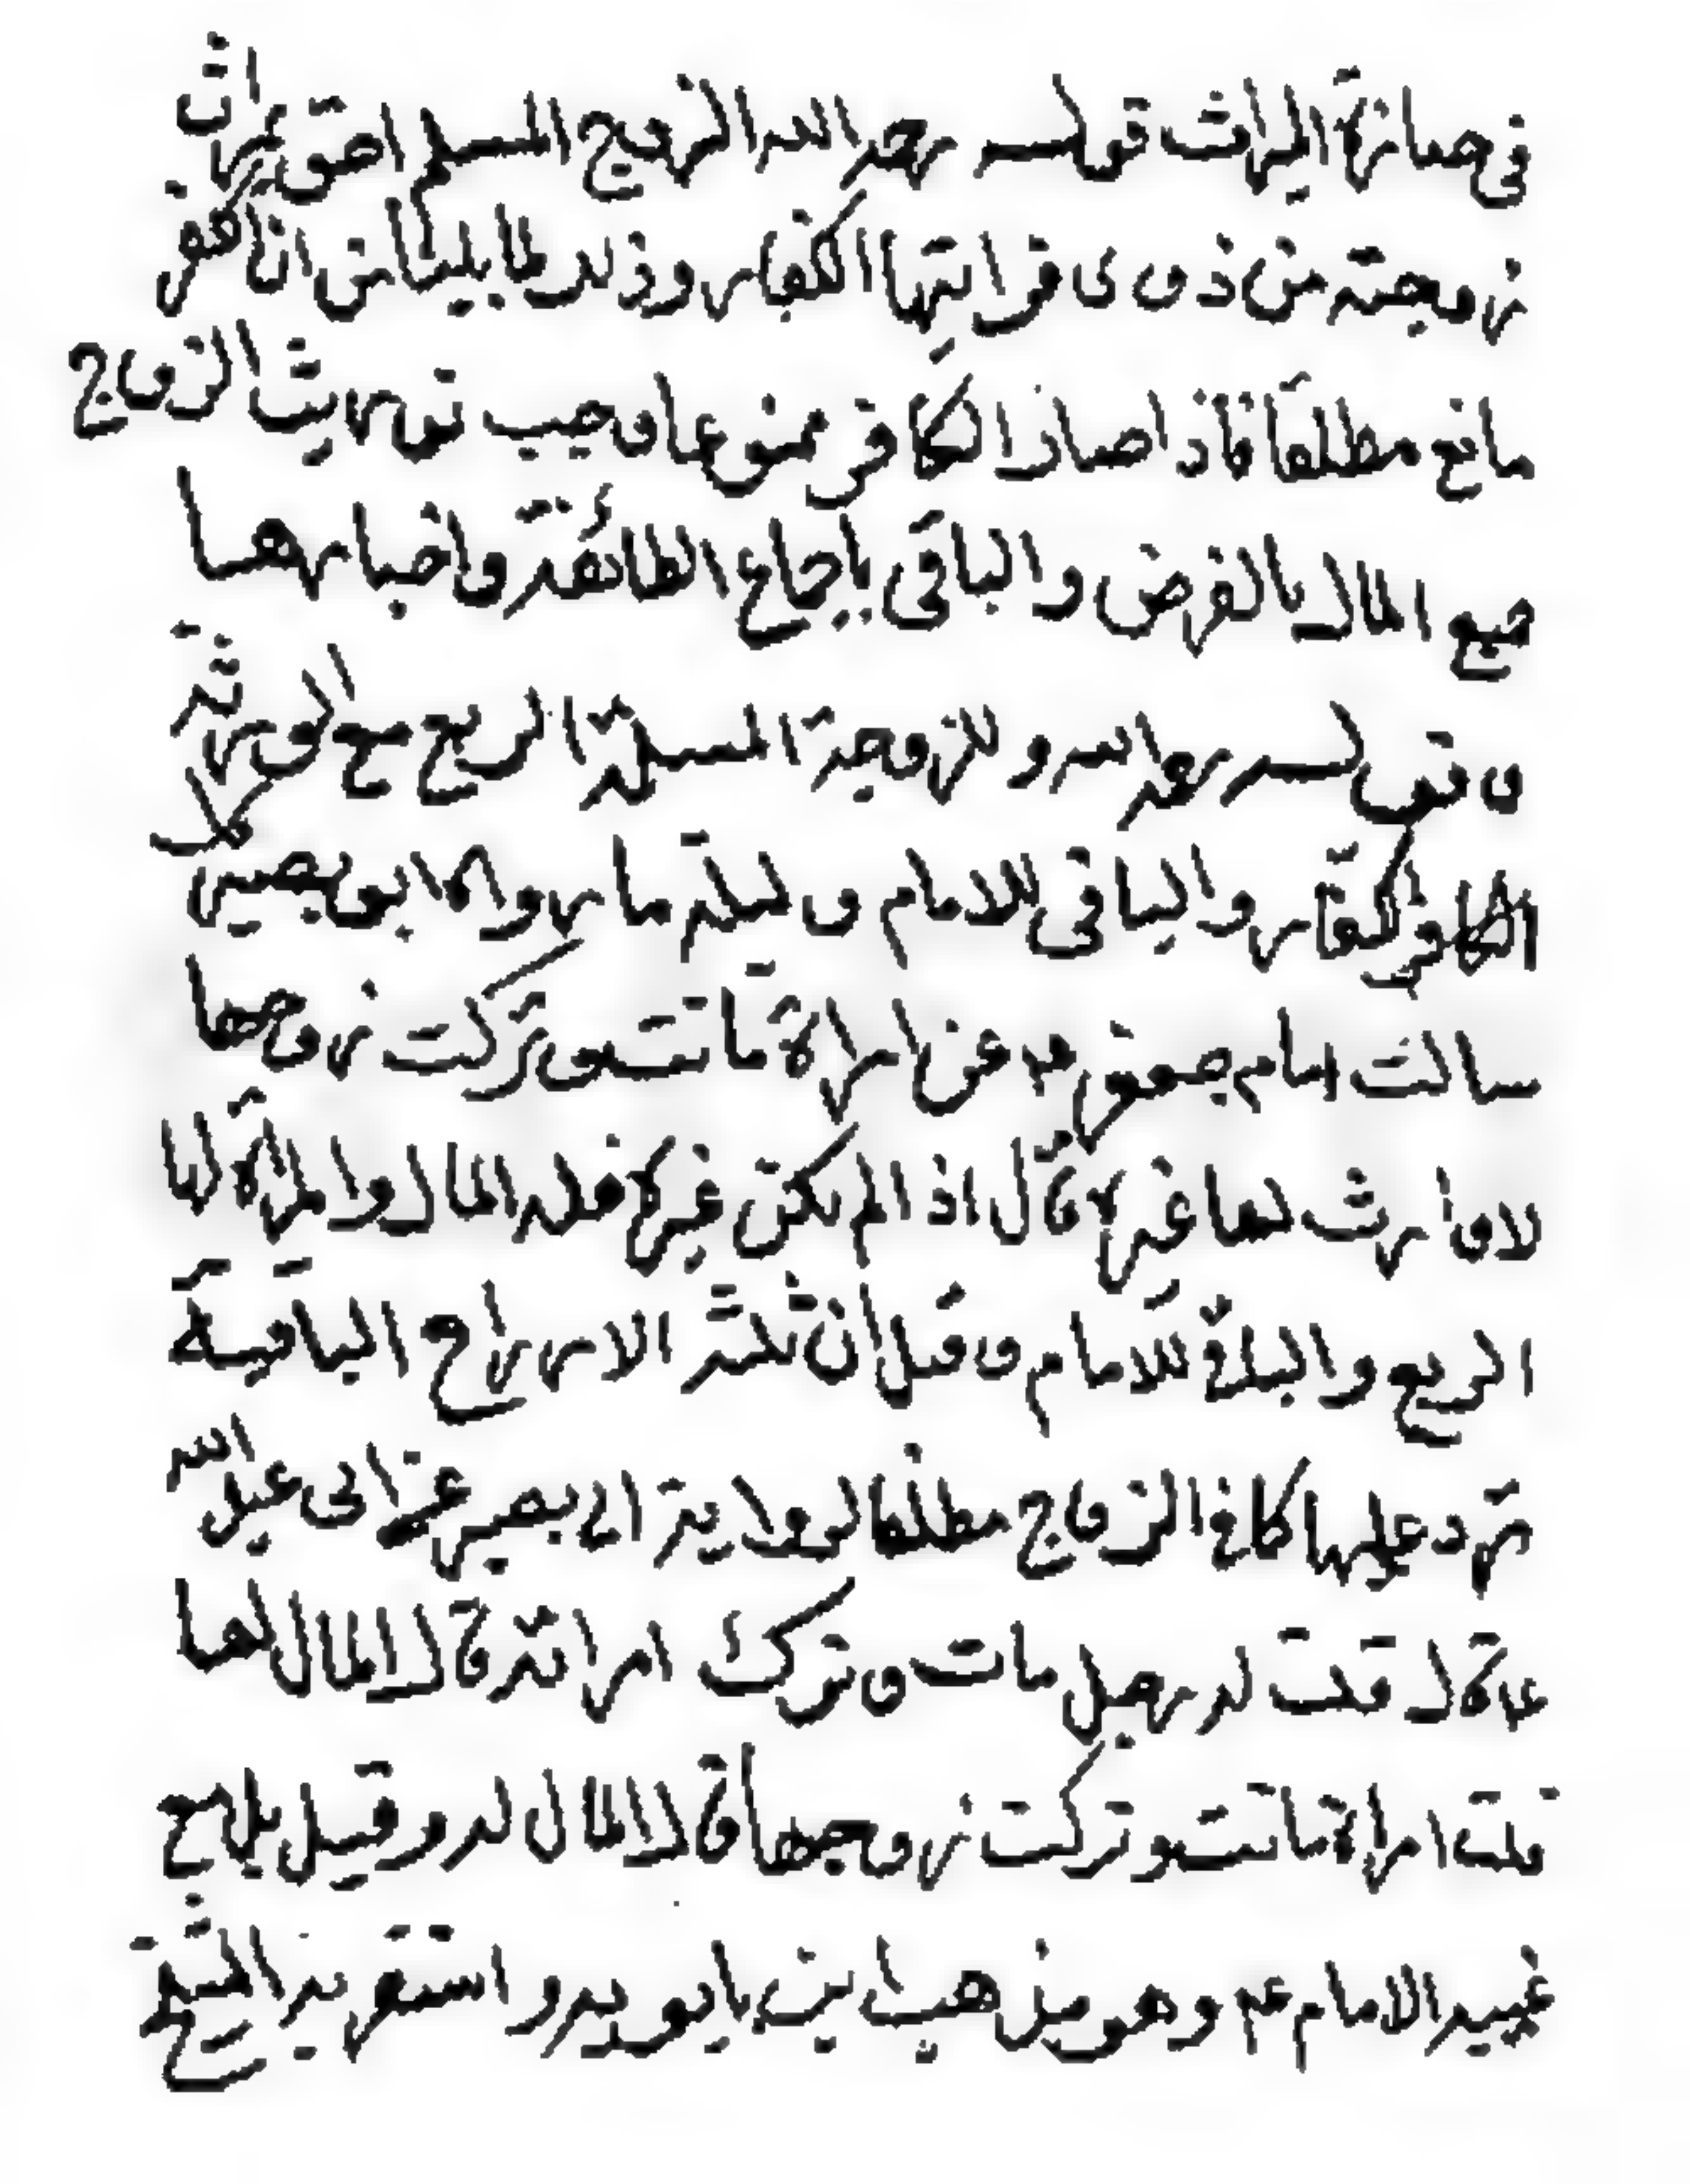 في حيازة الميراث قولـه رحمه الله الزوج المسلم احق بميراث
زوجته من ذوى قرابتها الكفار وذلك لما بينا من ان الكفر
مانع مطلقا فاذا صار الكافر ممنوعا وجب توريث الزوج
جميع المال بالفرض والباقى باجماع الطائفة واخبارهـا
وقولـه رحمه الله وللزوجة المسلمة الربع مع الورثة
الكفار والباقى للامام ودليله ما رواه ابو بصير
سالت امام جعفر عن امراة ماتت وتركت زوجها
لا وارث لها غيره قال اذا لم يكن غيره فله المال والمراة لها
الربع والباقى للامام وقيل ان ثلثة الارباع الباقية
ترد عليها كما في الزوج مطلقا لرواية ابى بصير عن ابى عبد الله
ع قال قلت له رجل مات وترك امراته قال المال لها
قلت امراة ماتت وتركت زوجها قال المال له وقيل بل مع
غيبه الامام عم وهو مذهب ابن بابويه واستقر به الشيخ